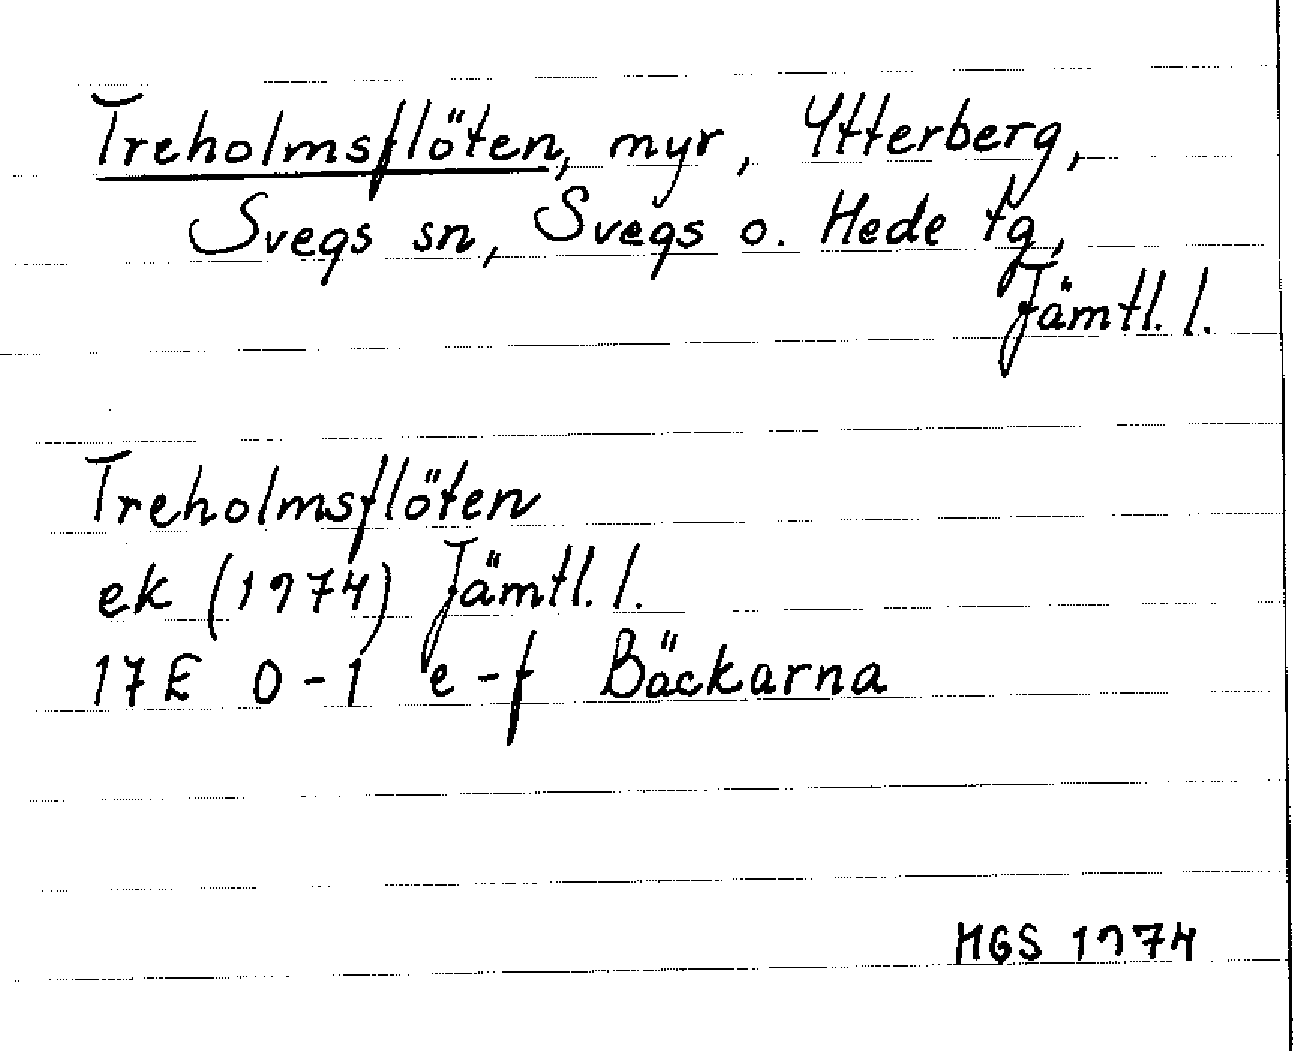 Treholmsflöten, myr, Ytterberg,
Svegs sn, Svegs o. Hede tg,
Jämtl. l.
Treholmsflöten
ek (1974) Jämtl. l.
17E 0-1 e-f Bäckarna
MGS 1974